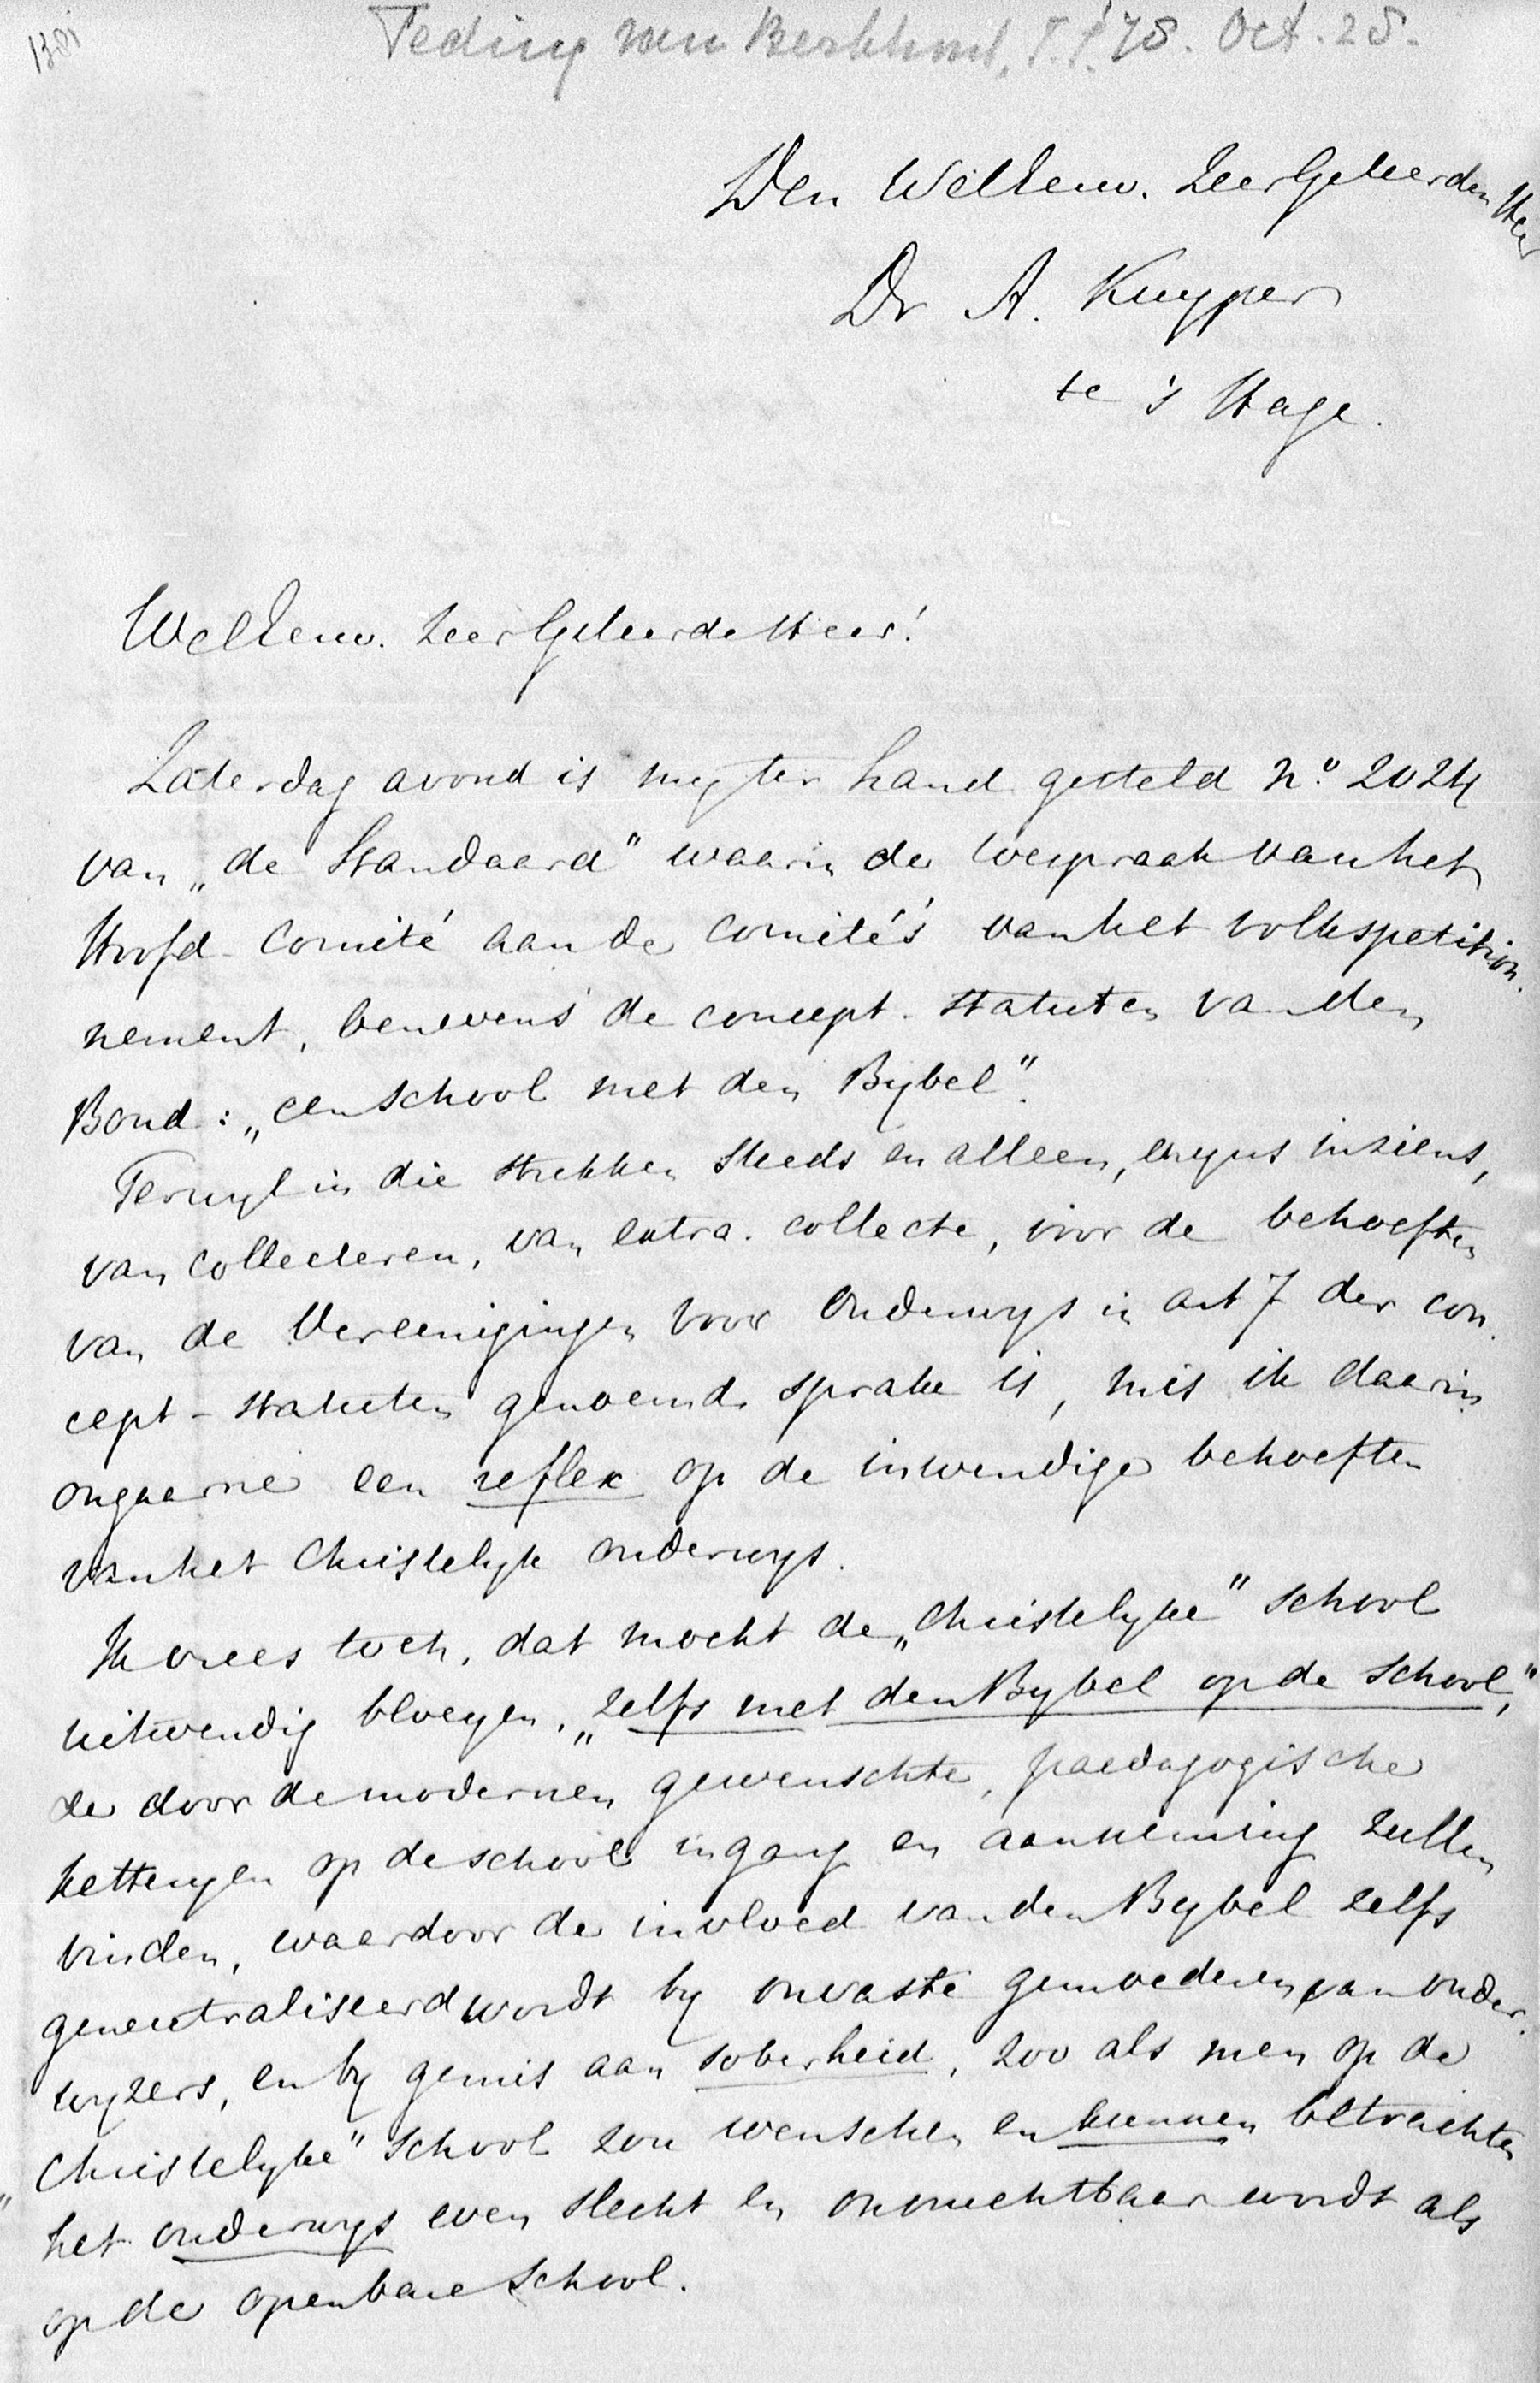 1301
Teding van Berkhout, '78. Oct. 28.
Den WelEerw. ZeerGeleerden Heer
Dr A. Kuyper
te 's Hage.
WelEerw. ZeerGeleerde Heer!
Zaterdag avond is my ter hand gesteld No. 2024
van „de Standaard" waarin de toespraak van het
Hoofd-Comité aan de Comité's van het volkspetition-
nement, benevens de concept-statuten van den
Bond: „een school met den Bybel".
Terwyl in die stukken steeds en alleen, myns inziens,
van collecteren, van extra-collecte, voor de behoeften
van de Vereenigingen voor Onderwys in art 7 der con-
cept-statuten genoemd sprake is, mis ik daarin
ongaarne een reflex op de inwendige behoeften
van het Christelyk onderwys.
Ik vrees toch, dat mocht de „Christelyke" school
uitwendig bloeyen, „zelfs met den Bybel op de school,"
de door de modernen gewenschte, paedagogische
ketteryen op de school ingang en aanneming zullen
vinden, waardoor de invloed van den Bybel zelfs
geneutraliseerd wordt by onvaste gemoederen van onder-
wyzers, en by gemis aan soberheid, zoo als men op de
„Christelyke" school zou wenschen en kunnen betrachten
het onderwys even slecht en onvruchtbaar wordt als
op de openbare school.